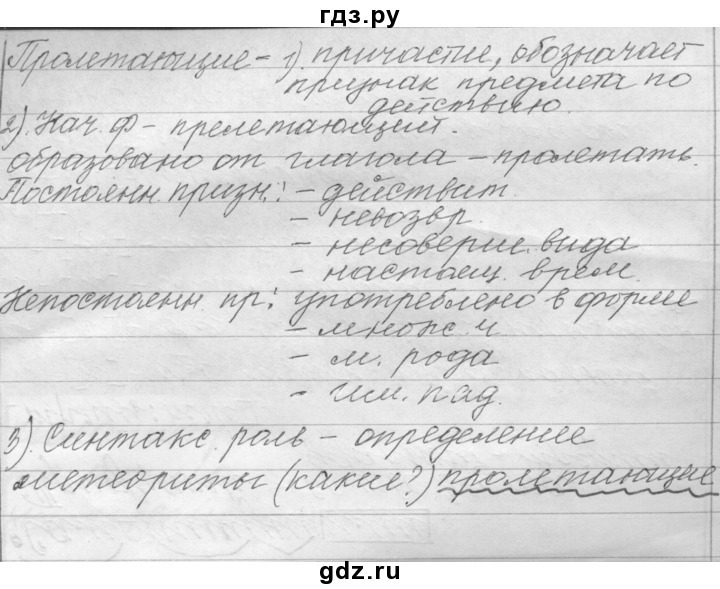 гдз.ру
Пролетающие - 1). причастие, обозначает
признак предмета по
действию.
2). Нач. ф - прелетающий.
образовано от глагола - пролетать.
Постоянн. призн.: - действит.
- невозвр.
- несоверш. вида
- настоящ. врем.
Непостоянн. пр.: употреблено в форме
- множ. ч
- м. рода
- им. пад.
3). Синтакс. роль - определение
метеориты (какие?) пролетающие
gdz.ru